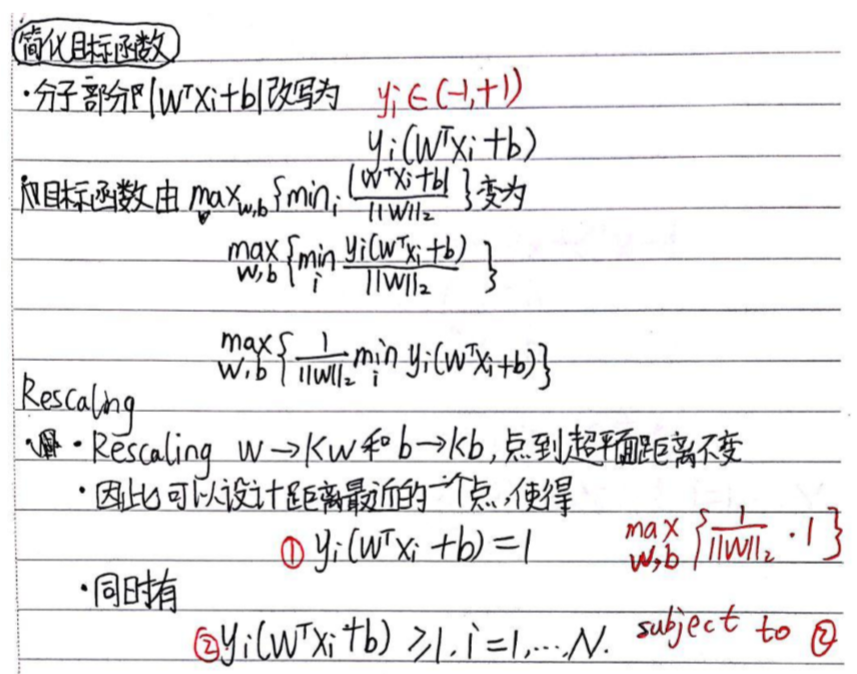 简化目标函数
·分子部分|WᵀXi+b|改写为 yi∈(-1,+1)
yi(WᵀXi+b)
目标函数由 max_{w,b}{min_i |WᵀXi+b| / ||W||₂}变为
max_{W,b}{min_i yi(WᵀXi+b) / ||W||₂}
max_{W,b}{1/||W||₂ min_i yi(WᵀXi+b)}
Rescaling
·Rescaling W→KW和b→kb,点到超平面距离不变
·因此可以设计距离最近的一个点,使得
① yi(WᵀXi+b)=1 max_{W,b}{1/||W||₂ · 1}
·同时有
② yi(WᵀXi+b)≥1, i=1,…,N. subject to ②